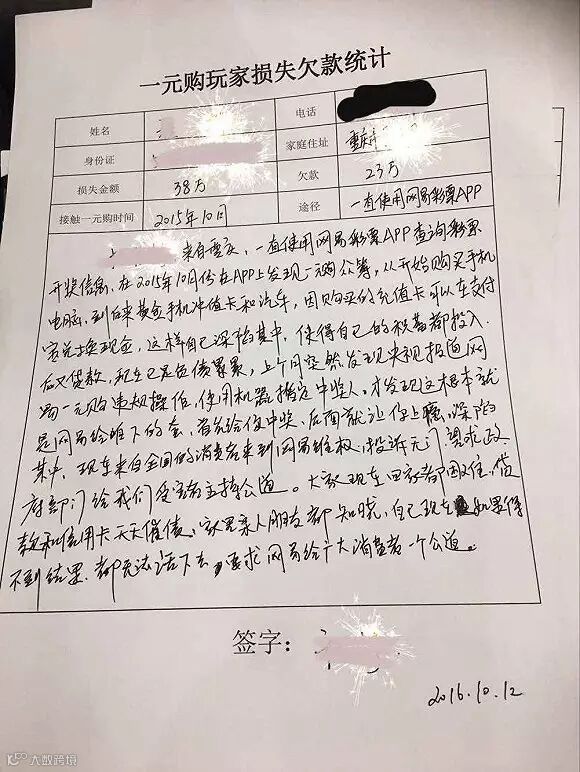 一元购玩家损失欠款统计
姓名 电话
身份证 家庭住址 重庆
损失金额 38万 欠款 23万
接触一元购时间 2015年10月 途径 一直使用网易彩票APP
来自重庆,一直使用网易彩票APP查询彩票
开奖信息,在2015年10月份在APP上发现一元众筹,从开始购买手机
电脑,到后来黄金手机冲值卡和汽车,因购买的充值卡可以在支付
宝兑换现金,这样自己深陷其中,使得自己的积蓄都投入.
后又贷款,现在已是负债累累,上个月突然发现央视报道网
易一元购违规操作,使用机器指定中奖人,才发现这根本就
是网易给咱下的套,首先给你中奖,后面就让你上瘾,深陷
其中,现在来自全国的消费者来到网易维权,投诉无门望求政
府部门给我们受害者主持公道。大家现在回家都困难,借
款和信用卡天天催债,家里亲人朋友都知晓,自己现在如果得
不到结果,都无法活下去,要求网易给广大消费者一个公道。
签字:
2016.10.12
大数跨境